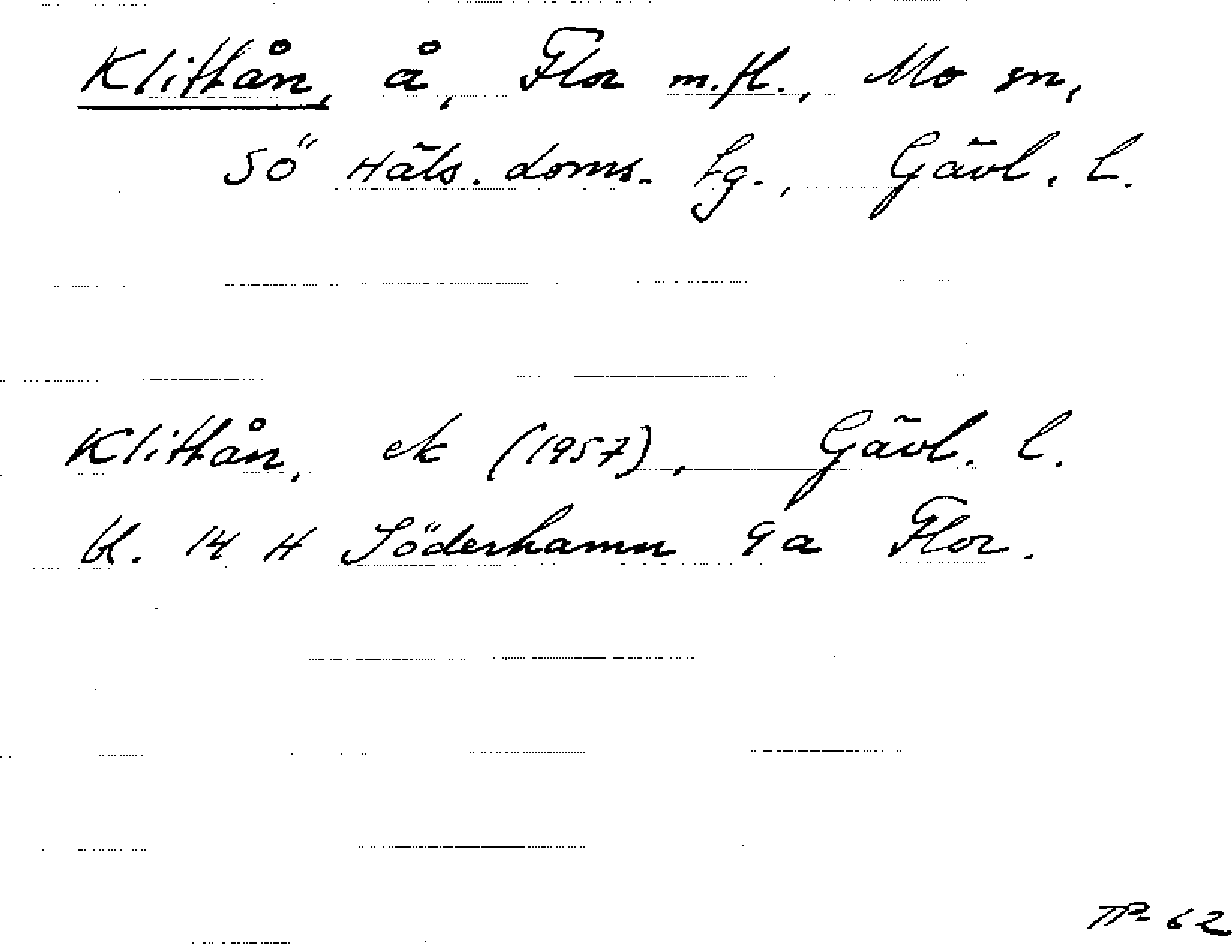 Klittån, å, Flor m.fl., Mo sn,
Sö Häls. doms. tg., Gävl. l.
Klittån, ek (1957), Gävl. l.
bl. 14 H Söderhamn 9a Flor.
TP 62